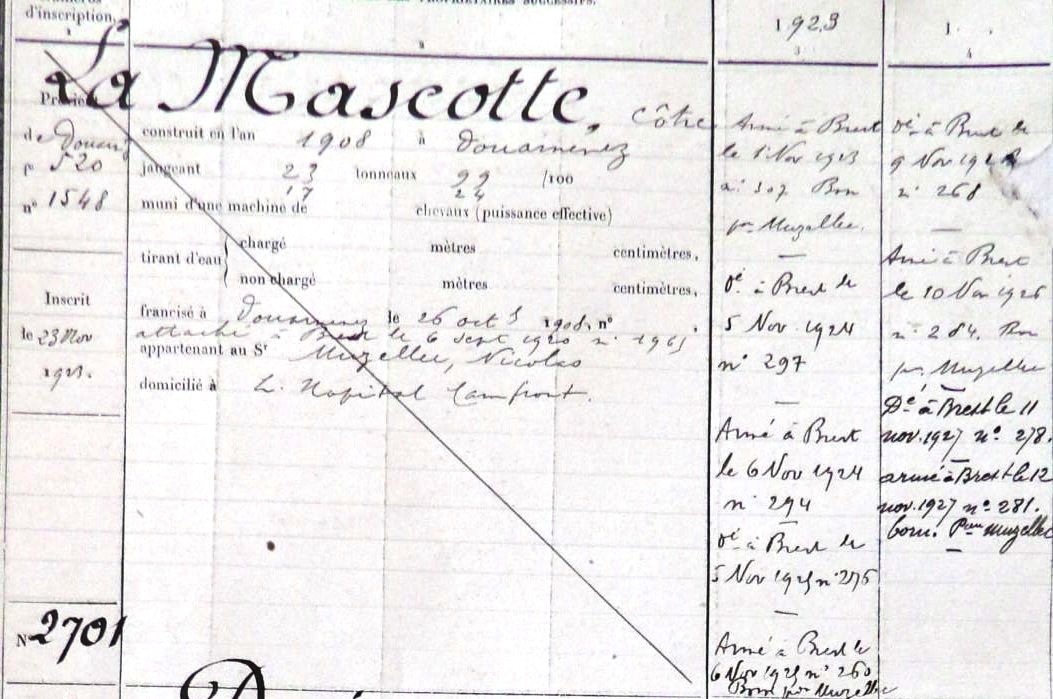 d'inscription.
1923
1
2
3
4
La Mascotte, côtre
Provient
de Douarn
fº 520
nº 1548
construit en l'an 1908 à Douarnenez
jaugeant 23 tonneaux 99 /100
17 24
muni d'une machine de chevaux (puissance effective)
tirant d'eau
chargé mètres centimètres,
non chargé mètres centimètres,
francisé à Douarnenez le 26 oct 1908, nº ,
attaché à Brest le 6 sept 1920 nº 1965
appartenant au Sr Muzellec, Nicolas
domicilié à L. Hopital Camfrout.
Inscrit
le 23 Nov
1923.
Nº 2701
Armé à Brest
le 8 Nov 1923
nº 307 Born
par Muzellec.
—
Dé à Brest le
5 Nov 1924
nº 297
—
Armé à Brest
le 6 Nov 1924
nº 294
—
Dé à Brest le
5 Nov 1925 nº 276
—
Armé à Brest le
6 Nov 1925 nº 260
Born par Muzellec
Dé à Brest le
9 Nov 1926
nº 268
—
Armé à Brest
le 10 Nov 1926
nº 284. Born
par Muzellec
—
Dé à Brest le 11
nov. 1927 nº 278.
—
armé à Brest le 12
nov. 1927 nº 281.
born. Pon Muzellec
—